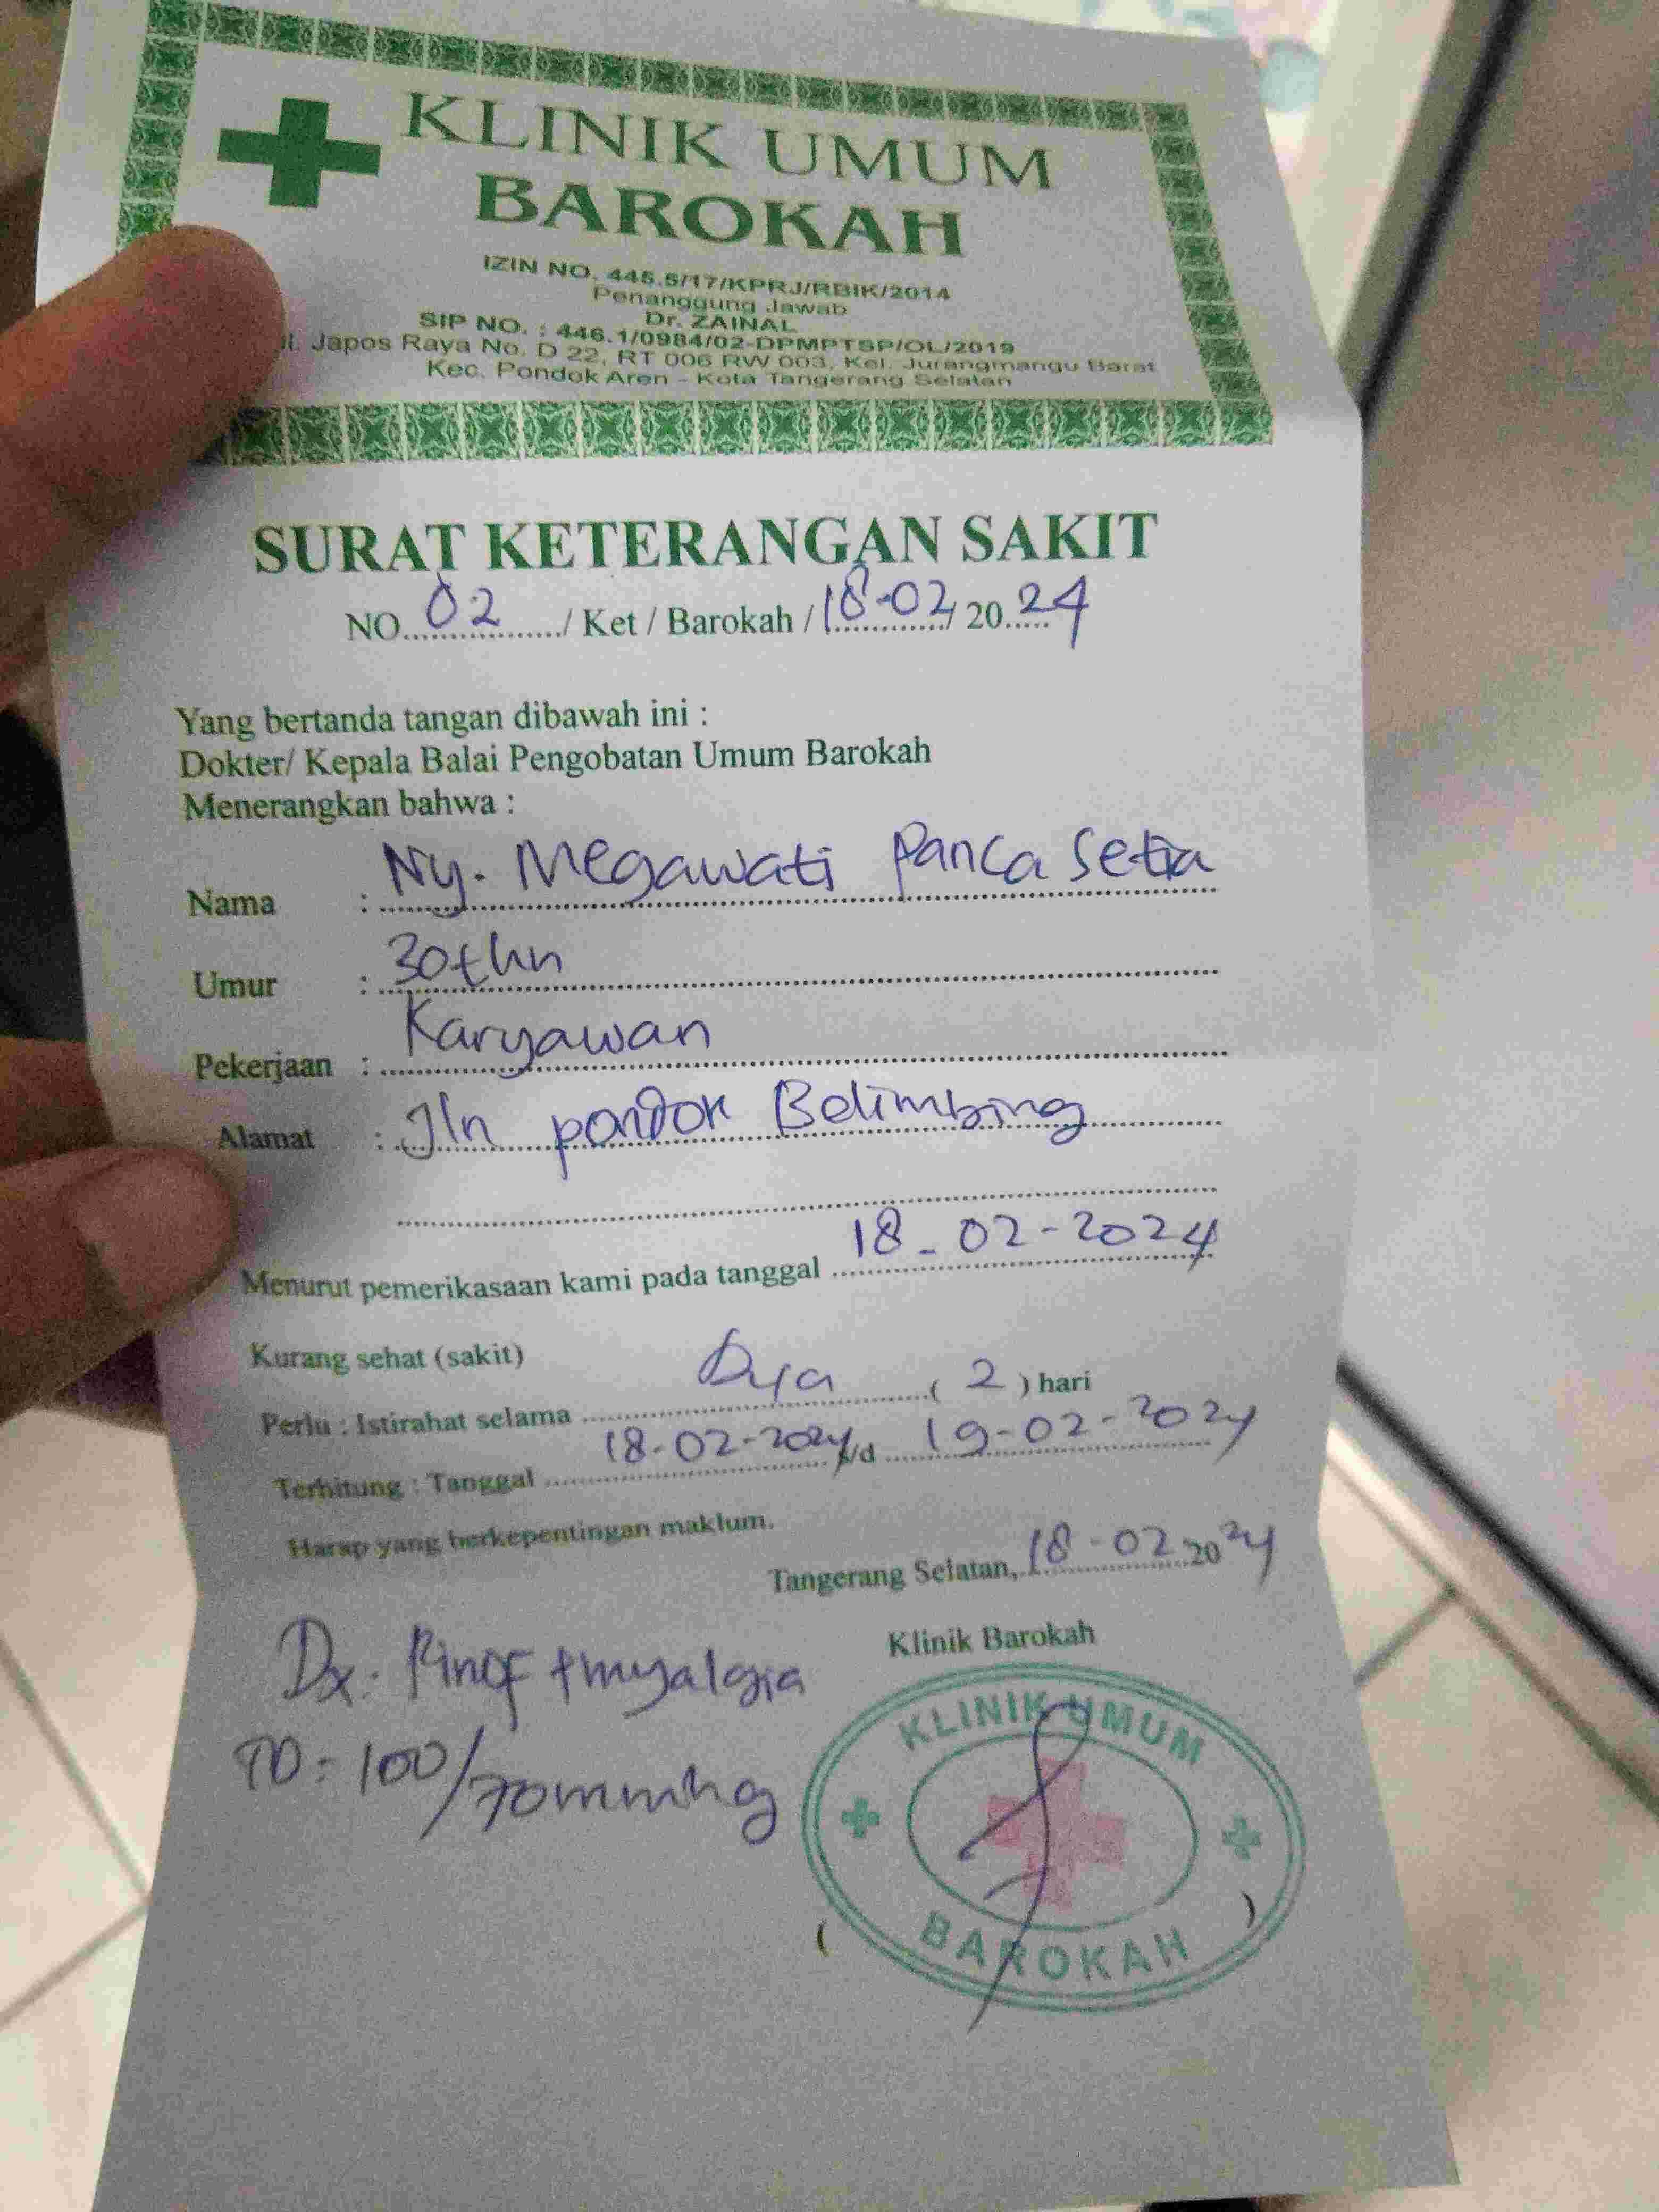 KLINIK UMUM
BAROKAH
IZIN NO. 445.5/17/KPRJ/RBIK/2014
Penanggung Jawab
Dr. ZAINAL
SIP NO. : 446.1/0984/02-DPMPTSP/OL/2019
Jl. Japos Raya No. D 22, RT 006 RW 003, Kel. Jurangmangu Barat
Kec. Pondok Aren - Kota Tangerang Selatan
SURAT KETERANGAN SAKIT
NO. 02 / Ket / Barokah / 18-02 / 20 24
Yang bertanda tangan dibawah ini :
Dokter/ Kepala Balai Pengobatan Umum Barokah
Menerangkan bahwa :
Nama : Ny. Megawati Panca Setia
Umur : 30 thn
Pekerjaan : Karyawan
Alamat : Jln pondok Belimbing
Menurut pemerikasaan kami pada tanggal 18-02-2024
Kurang sehat (sakit)
Perlu : Istirahat selama Dua ( 2 ) hari
Terhitung : Tanggal 18-02-2024 s/d 19-02-2024
Harap yang berkepentingan maklum.
Tangerang Selatan, 18-02 20 24
Klinik Barokah
Dx. + myalgia
TD : 100/70 mmhg
KLINIK UMUM
BAROKAH
( )